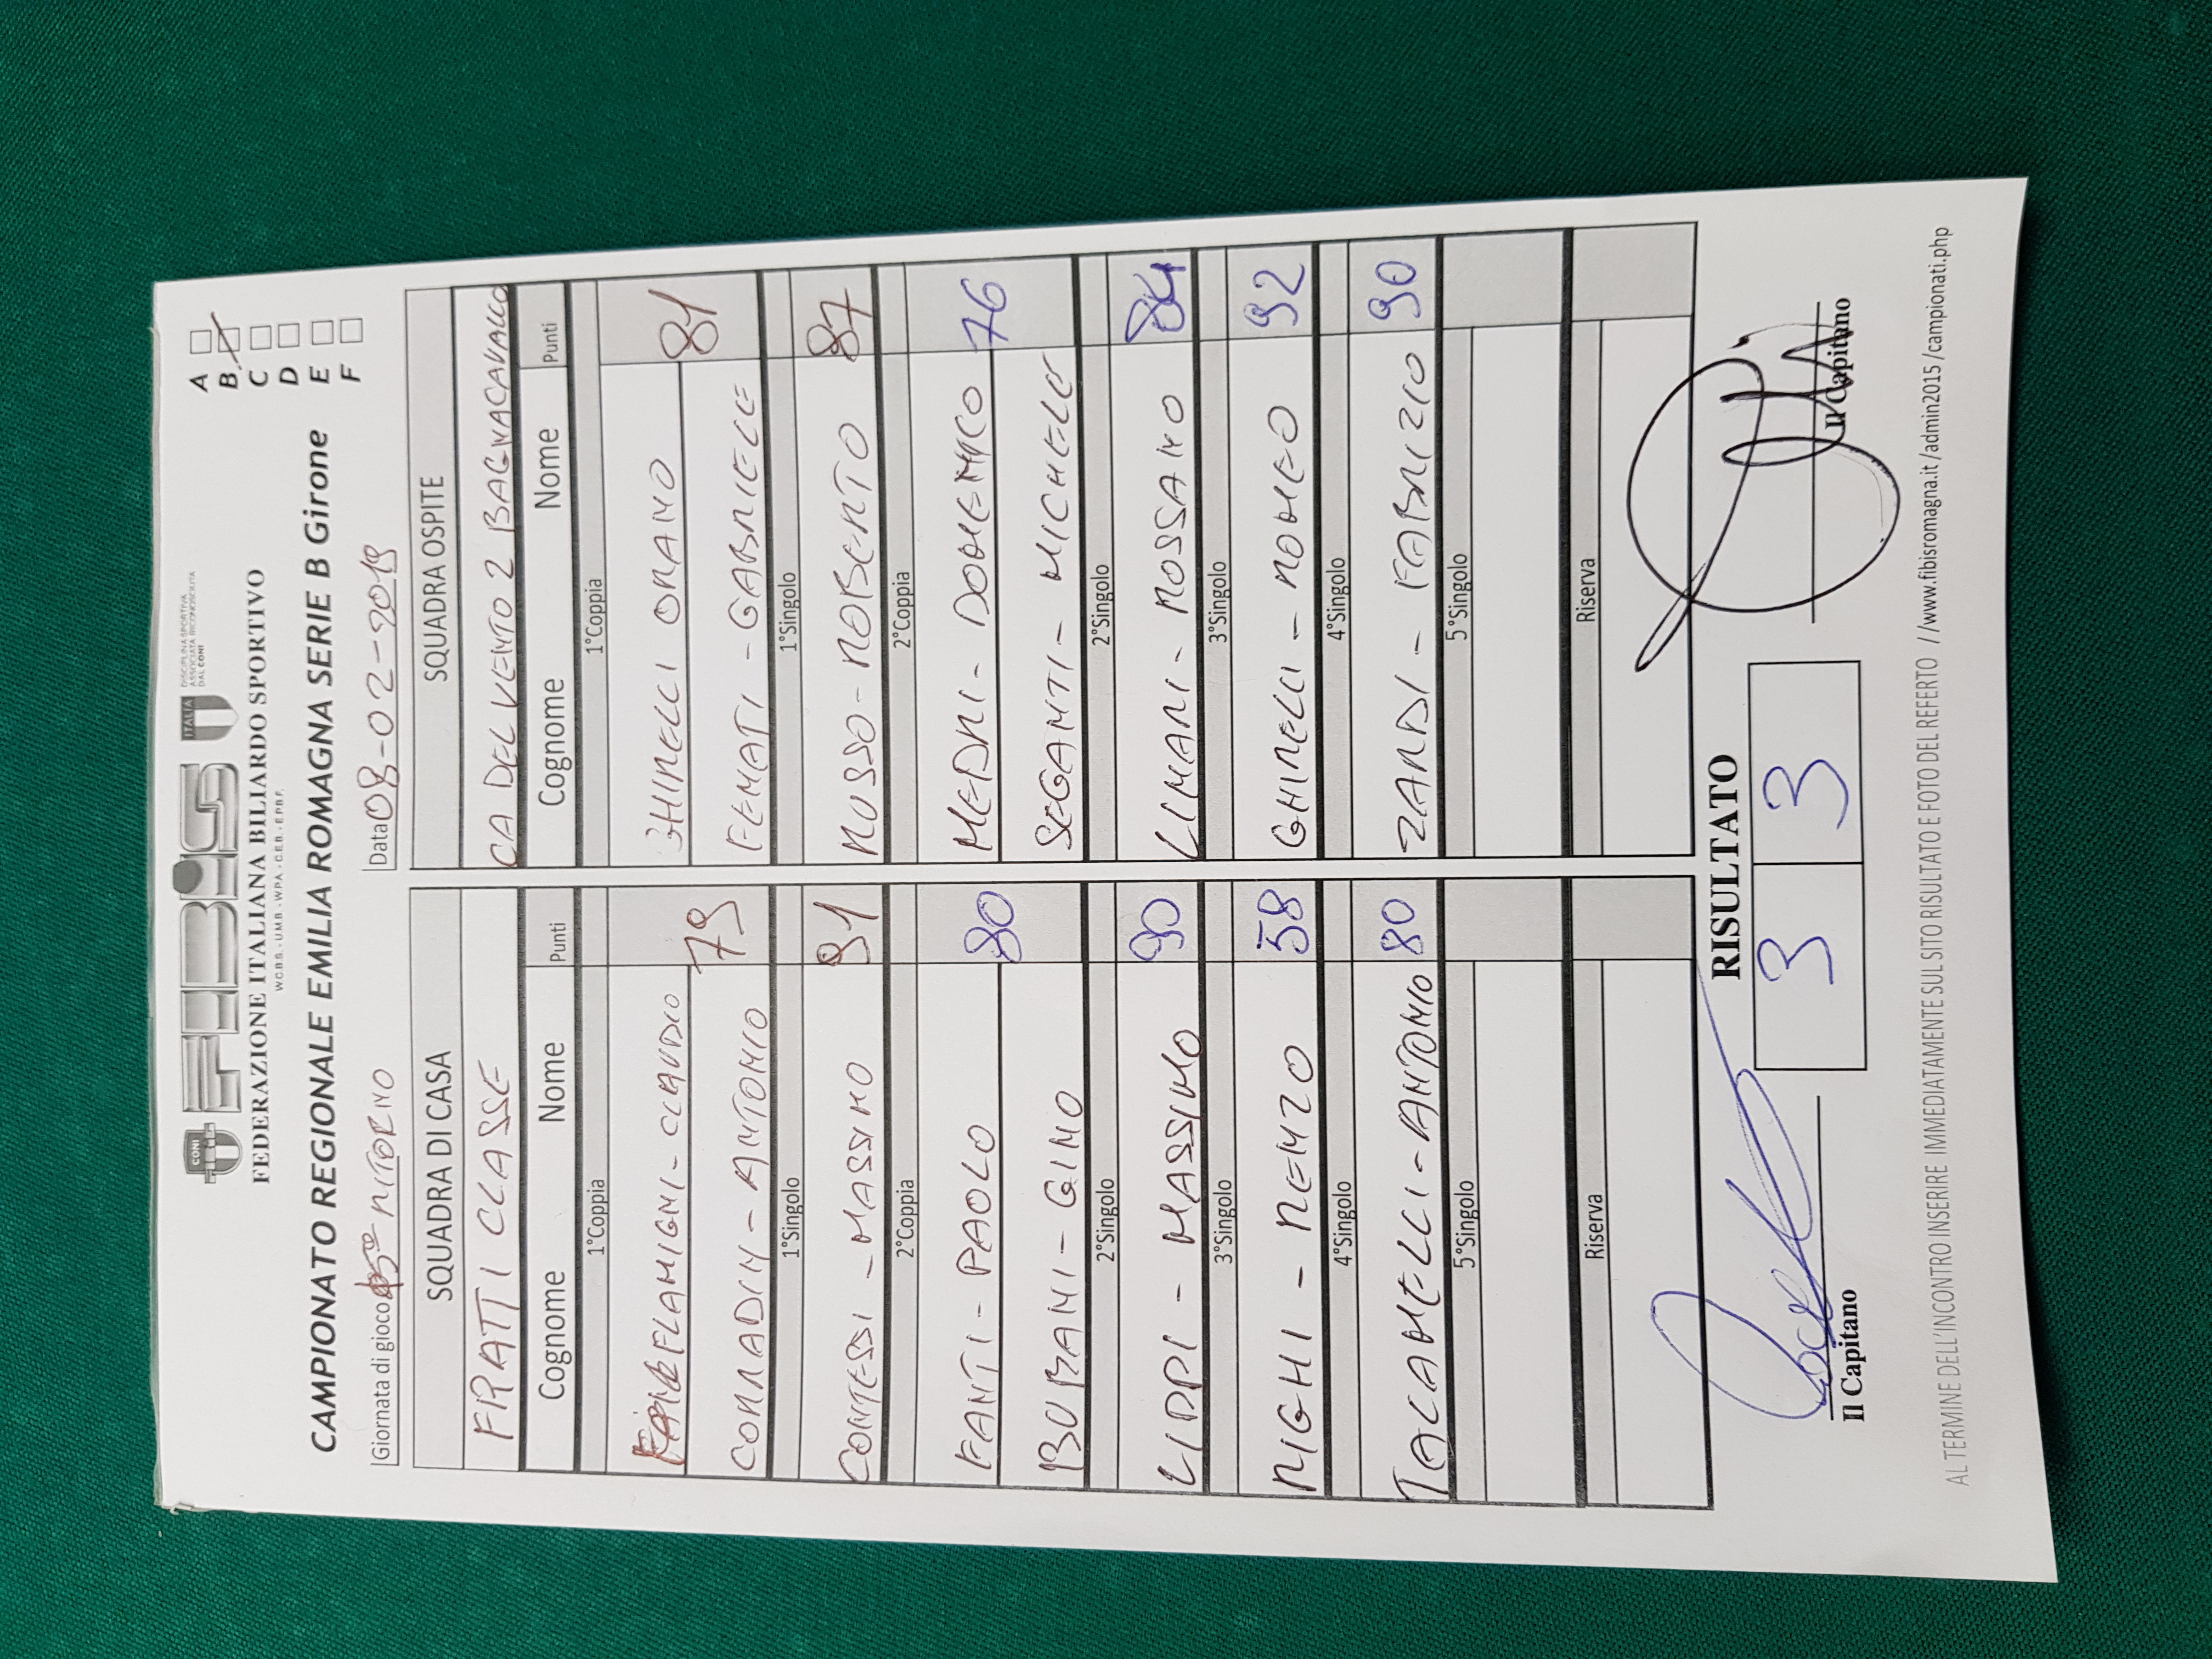 CONI
FIBiS
ITALIA
DISCIPLINA SPORTIVA
ASSOCIATA RICONOSCIUTA
DAL CONI
FEDERAZIONE ITALIANA BILIARDO SPORTIVO
W.C.B.S. - U.M.B. - W.P.A. - C.E.B. - E.P.B.F.
CAMPIONATO REGIONALE EMILIA ROMAGNA SERIE B Girone
A
B
C
D
E
F
Giornata di gioco RITORNO
Data 08-02-2019
SQUADRA DI CASA SQUADRA OSPITE
FRATTI CLASSE CA DEL VENTO 2 BAGNACAVALLO
Cognome Nome Punti Cognome Nome Punti
1°Coppia 1°Coppia
FLAMIGNI - CLAUDIO GHINELLI ORAMO
79 81
CORRADINI - ANTONIO FEMATI - GABRIELE
1°Singolo 1°Singolo
CONTESSI - MASSIMO 91 RUSSO - ROBERTO 87
2°Coppia 2°Coppia
FANTI - PAOLO 80 MEDRI - DOMENICO 76
BUBANI - GINO SEGANTI - MICHELE
2°Singolo 2°Singolo
LIPPI - MASSIMO 90 LIMANI - ROSSANO 84
3°Singolo 3°Singolo
RIGHI - RENZO 58 GHINELLI - ROMEO 92
4°Singolo 4°Singolo
TACCHELLI - ANTONIO 80 ZANDI - FABRIZIO 90
5°Singolo 5°Singolo
Riserva Riserva
RISULTATO
3 3
Il Capitano Il Capitano
AL TERMINE DELL'INCONTRO INSERIRE IMMEDIATAMENTE SUL SITO RISULTATO E FOTO DEL REFERTO //www.fibisromagna.it/admin2015/campionati.php